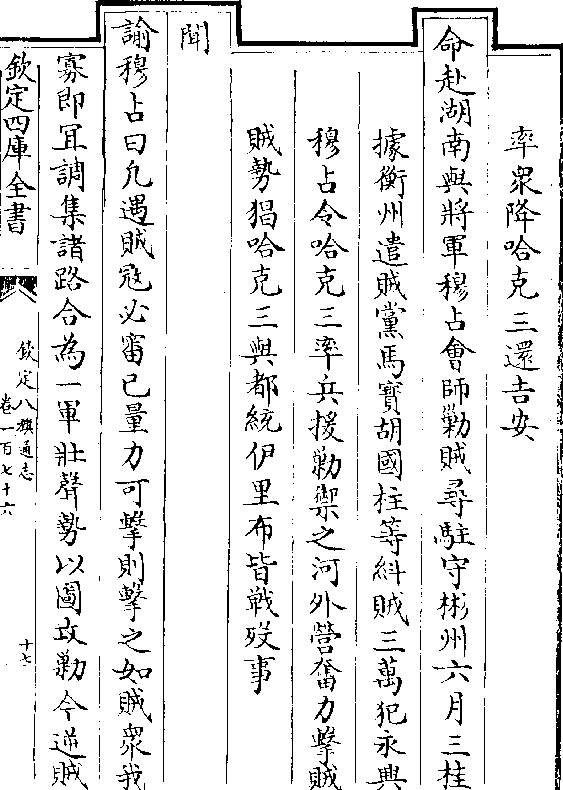 率衆降哈克三還吉安
命赴湖南與將軍穆占會師勦賊尋駐守彬州六月三桂
據衡州遣賊黨馬寶胡國柱等糾賊三萬犯永興
穆占令哈克三率兵援勦禦之河外營奮力擊賊
賊勢猖哈克三與都統伊里布皆戰歿事
聞
諭穆占曰凡遇賊冦必審已量力可擊則擊之如賊衆我
寡即宜調集諸路合為一軍壯聲勢以圖攻勦今逆賊
欽定四庫全書
欽定八旗通志
卷一百七十六
十七